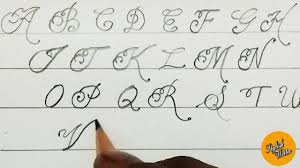 A B C D E F G H
I J K L M N
O P Q R S T U
V